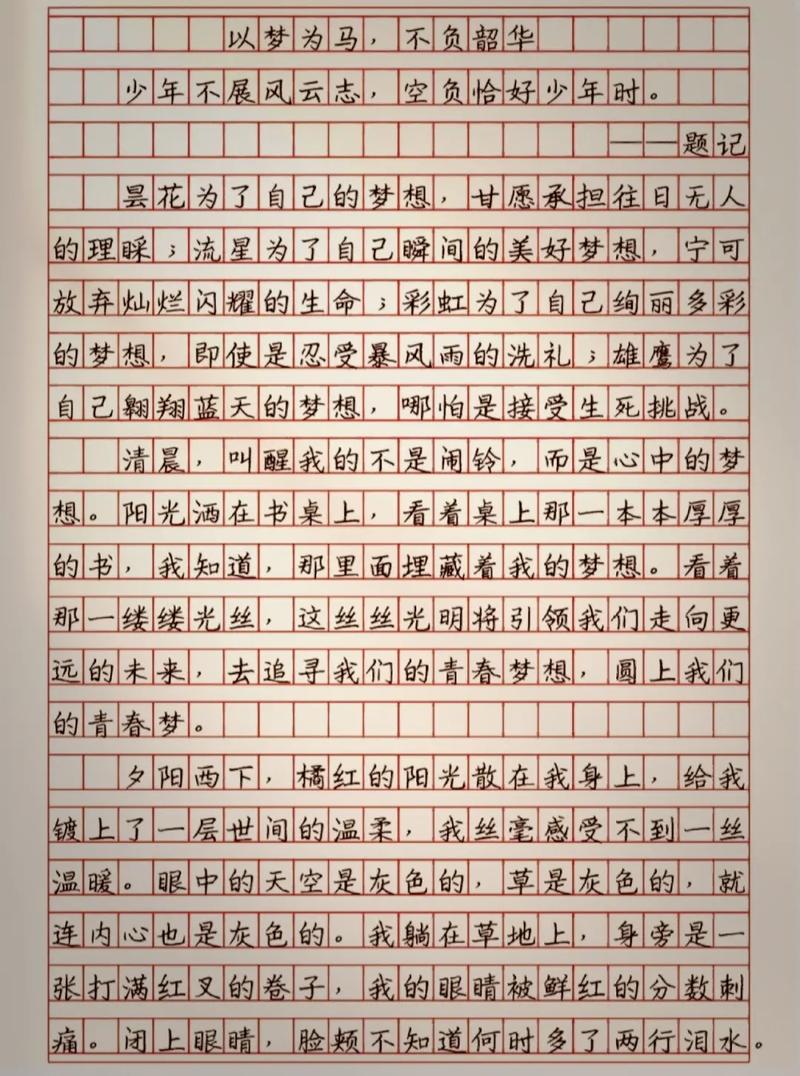 以梦为马，不负韶华
少年不展风云志，空负恰好少年时。
——题记
昙花为了自己的梦想，甘愿承担往日无人
的理睬；流星为了自己瞬间的美好梦想，宁可
放弃灿烂闪耀的生命；彩虹为了自己绚丽多彩
的梦想，即使是忍受暴风雨的洗礼；雄鹰为了
自己翱翔蓝天的梦想，哪怕是接受生死挑战。
清晨，叫醒我的不是闹铃，而是心中的梦
想。阳光洒在书桌上，看着桌上那一本本厚厚
的书，我知道，那里面埋藏着我的梦想。看着
那一缕缕光丝，这丝丝光明将引领我们走向更
远的未来，去追寻我们的青春梦想，圆上我们
的青春梦。
夕阳西下，橘红的阳光散在我身上，给我
镀上了一层世间的温柔，我丝毫感受不到一丝
温暖。眼中的天空是灰色的，草是灰色的，就
连内心也是灰色的。我躺在草地上，身旁是一
张打满红叉的卷子，我的眼睛被鲜红的分数刺
痛。闭上眼睛，脸颊不知道何时多了两行泪水。